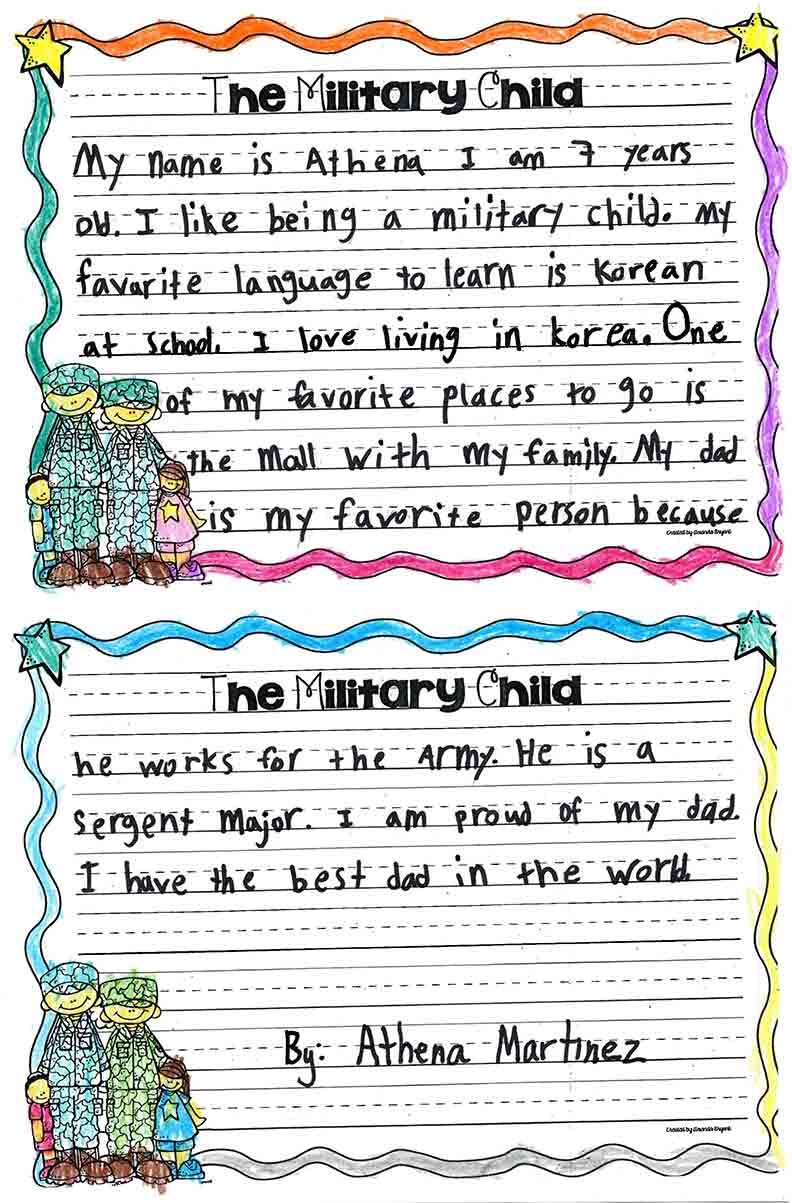 The Military Child
My name is Athena I am 7 years
old. I like being a military child. My
favorite language to learn is Korean
at school. I love living in korea. One
of my favorite places to go is
the Mall with my family. My dad
is my favorite person because
Created by Amanda Bryant
The Military Child
he works for the Army. He is a
Sergent Major. I am proud of my dad.
I have the best dad in the world.
By: Athena Martinez
Created by Amanda Bryant